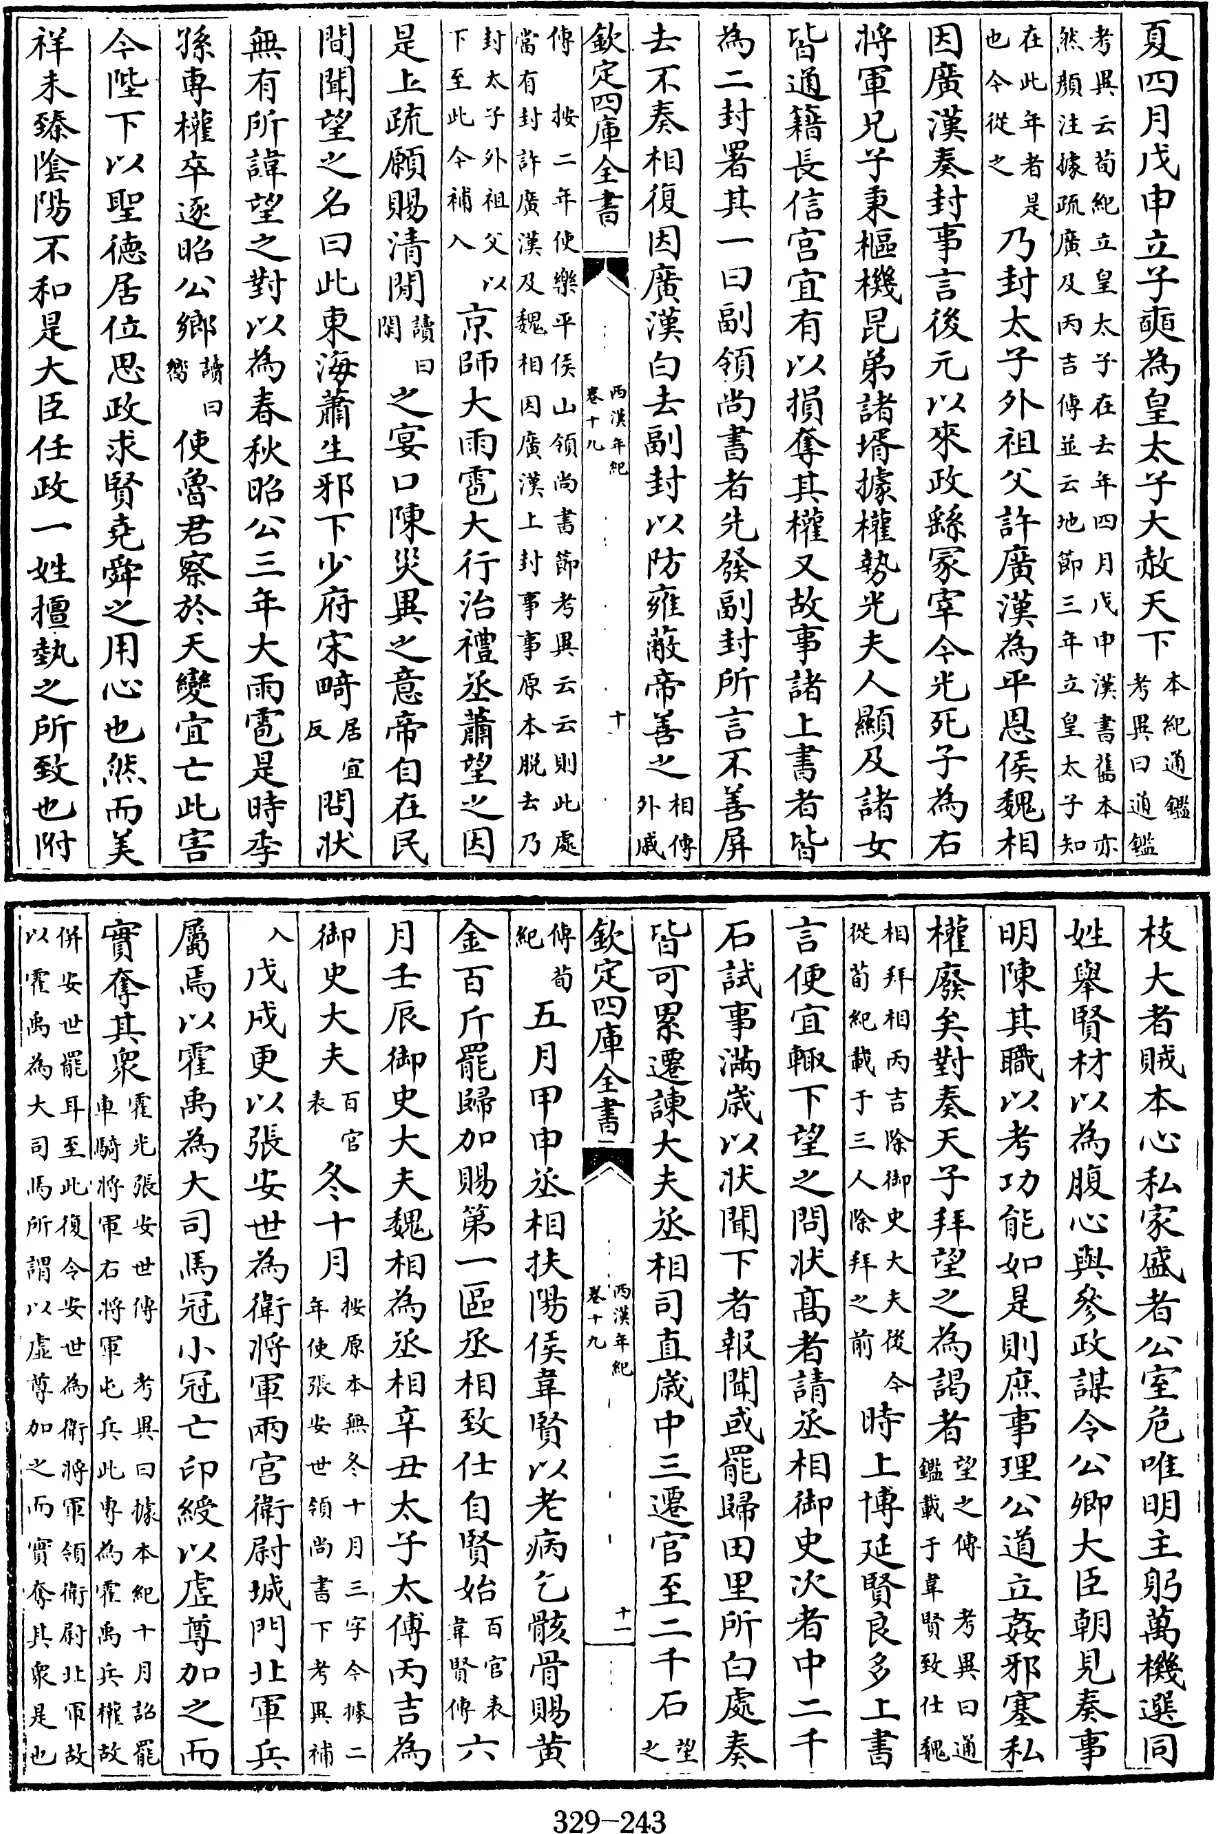 夏四月戊申立子奭為皇太子大赦天下本紀通鑑考異曰通鑑
考異云荀紀立皇太子在去年四月戊申漢書舊本亦
然顏注據疏廣及丙吉傳並云地節三年立皇太子知
在此年者是也今從之乃封太子外祖父許廣漢為平恩侯魏相
因廣漢奏封事言後元以來政繇冢宰今光死子為右
將軍兄子秉樞機昆弟諸壻據權勢光夫人顯及諸女
皆通籍長信宮宜有以損奪其權又故事諸上書者皆
為二封署其一曰副領尚書者先發副封所言不善屏
去不奏相復因廣漢白去副封以防雍蔽帝善之相傳外戚
欽定四庫全書 兩漢年紀卷十九 十
傳 按二年使樂平侯山領尚書節考異云云則此處
當有封許廣漢及魏相因廣漢上封事事原本脫去乃
封太子外祖父以下至此今補入京師大雨雹大行治禮丞蕭望之因
是上疏願賜清閒讀曰閑之宴口陳災異之意帝自在民
間聞望之名曰此東海蕭生邪下少府宋畸居宜反問狀
無有所諱望之對以為春秋昭公三年大雨雹是時季
孫專權卒逐昭公鄉讀曰嚮使魯君察於天變宜亡此害
今陛下以聖德居位思政求賢堯舜之用心也然而美
祥未臻陰陽不和是大臣任政一姓擅埶之所致也附
枝大者賊本心私家盛者公室危唯明主躬萬機選同
姓舉賢材以為腹心與參政謀令公卿大臣朝見奏事
明陳其職以考功能如是則庶事理公道立姦邪塞私
權廢矣對奏天子拜望之為謁者望之傳 考異曰通鑑載于韋賢致仕魏
相拜相丙吉除御史大夫後今從荀紀載于三人除拜之前時上博延賢良多上書
言便宜輒下望之問狀高者請丞相御史次者中二千
石試事滿歲以狀聞下者報聞或罷歸田里所白處奏
皆可累遷諫大夫丞相司直歲中三遷官至二千石望之
欽定四庫全書 兩漢年紀卷十九 十一
傳荀紀五月甲申丞相扶陽侯韋賢以老病乞骸骨賜黃
金百斤罷歸加賜第一區丞相致仕自賢始百官表韋賢傳六
月壬辰御史大夫魏相為丞相辛丑太子太傅丙吉為
御史大夫百官表冬十月按原本無冬十月三字今據二年使張安世領尚書下考異補
入戊戌更以張安世為衛將軍兩宮衛尉城門北軍兵
屬焉以霍禹為大司馬冠小冠亡印綬以虛尊加之而
實奪其眾霍光張安世傳 考異曰據本紀十月詔罷車騎將軍右將軍屯兵此專為霍禹兵權故
併安世罷耳至此復令安世為衛將軍領衛尉北軍故
以霍禹為大司馬所謂以虛尊加之而實奪其眾是也
329-243